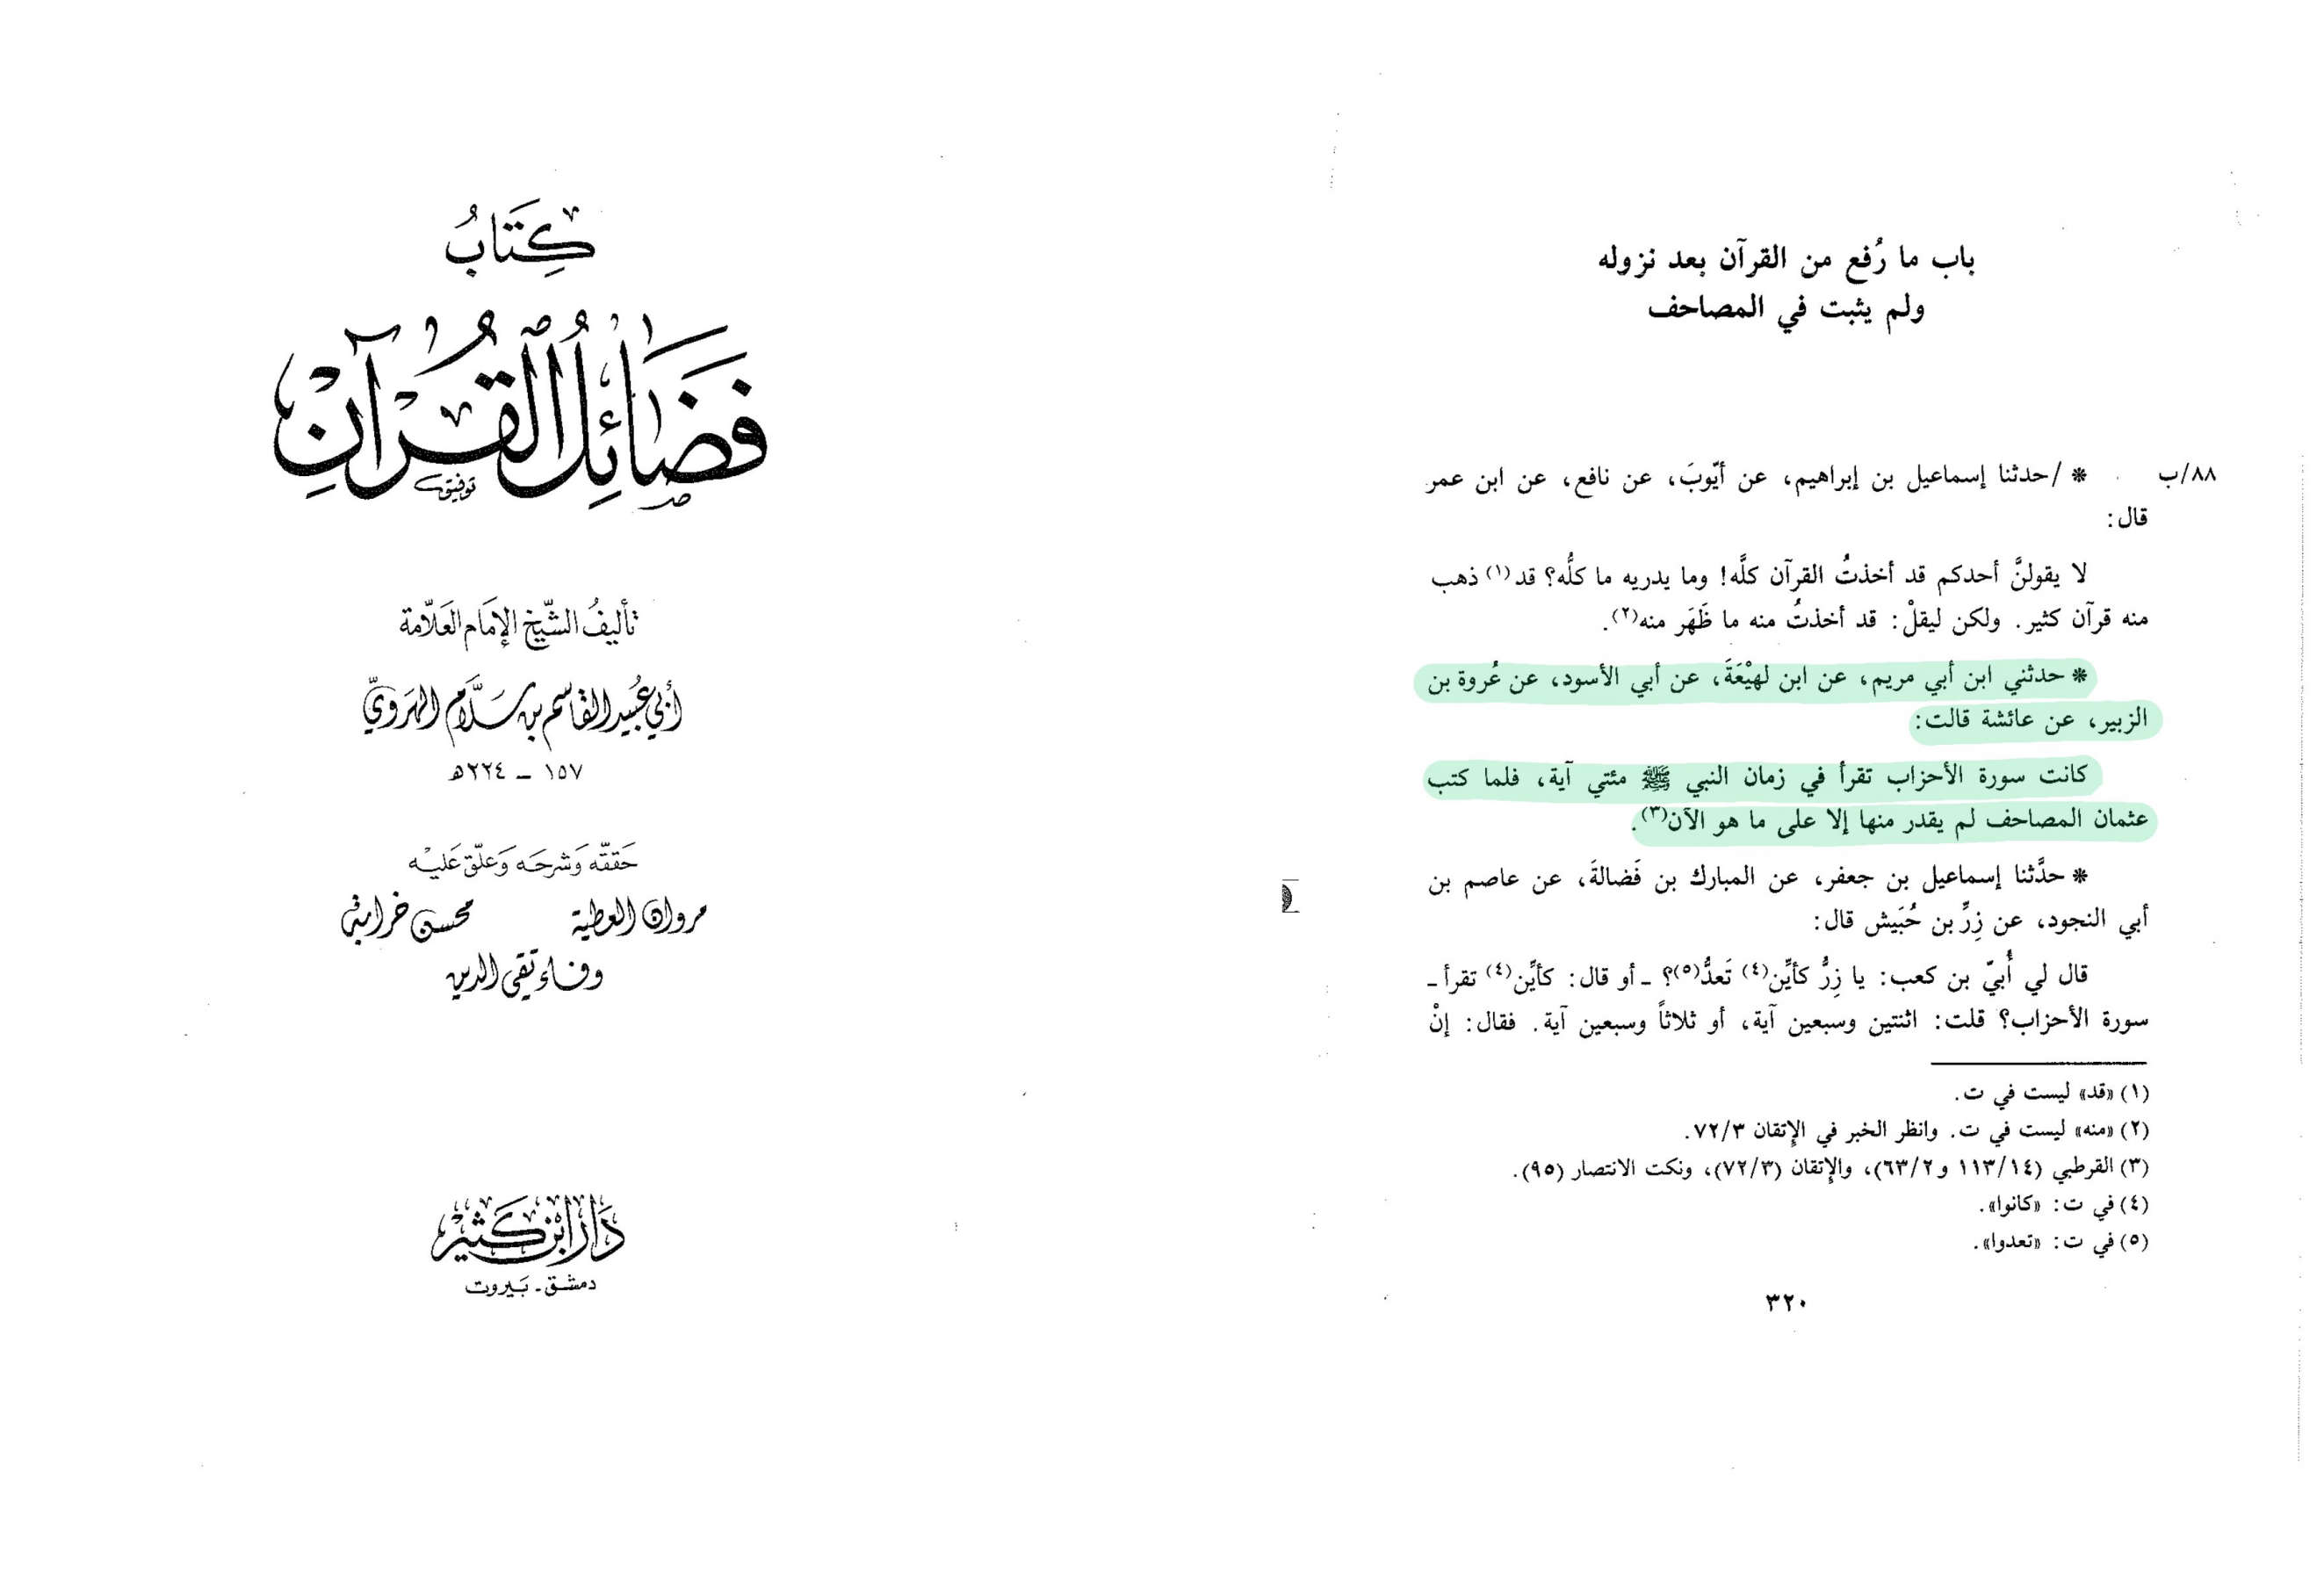 كِتَابُ
فَضَائِلُ القُرْآنِ
توفيق
تأليفُ الشّيخ الإمَام العَلاّمة
أبي عُبيد القاسم بن سَلاّم الهَرويّ
١٥٧ - ٢٢٤هـ
حَققّه وَشرحَه وَعلّق عَليْه
مروان العطية محسن خرابة
وفاء تقي الدين
دَار ابْن كَثير
دمشق - بَيروت
باب ما رُفع من القرآن بعد نزوله
ولم يثبت في المصاحف
٨٨/ب * /حدثنا إسماعيل بن إبراهيم، عن أيّوبَ، عن نافع، عن ابن عمر
قال:
لا يقولنَّ أحدكم قد أخذتُ القرآن كلَّه! وما يدريه ما كلُّه؟ قد(١) ذهب
منه قرآن كثير. ولكن ليقلْ: قد أخذتُ منه ما ظَهَر منه(٢).
* حدثني ابن أبي مريم، عن ابن لهيْعَةَ، عن أبي الأسود، عن عُروة بن
الزبير، عن عائشة قالت:
كانت سورة الأحزاب تقرأ في زمان النبي ﷺ مئتي آية، فلما كتب
عثمان المصاحف لم يقدر منها إلا على ما هو الآن(٣).
* حدَّثنا إسماعيل بن جعفر، عن المبارك بن فَضالةَ، عن عاصم بن
أبي النجود، عن زِرِّ بن حُبَيش قال:
قال لي أُبيّ بن كعب: يا زِرُّ كأيِّن(٤) تَعدُّ(٥)؟ ـ أو قال: كأيِّن(٤) تقرأ ـ
سورة الأحزاب؟ قلت: اثنتين وسبعين آية، أو ثلاثاً وسبعين آية. فقال: إنْ
(١) «قد» ليست في ت.
(٢) «منه» ليست في ت. وانظر الخبر في الإتقان ٧٢/٣.
(٣) القرطبي (١١٣/١٤ و٦٣/٢)، والإتقان (٧٢/٣)، ونكت الانتصار (٩٥).
(٤) في ت: «كانوا».
(٥) في ت: «تعدوا».
٣٢٠